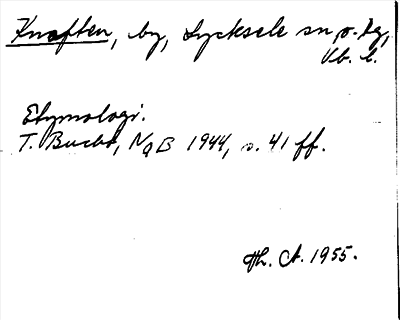 Knaften, by, Lycksele sn o. tg,
Vb. l.
Etymologi.
T. Bucht, NoB 1944, s. 41 ff.
Th. A. 1955.